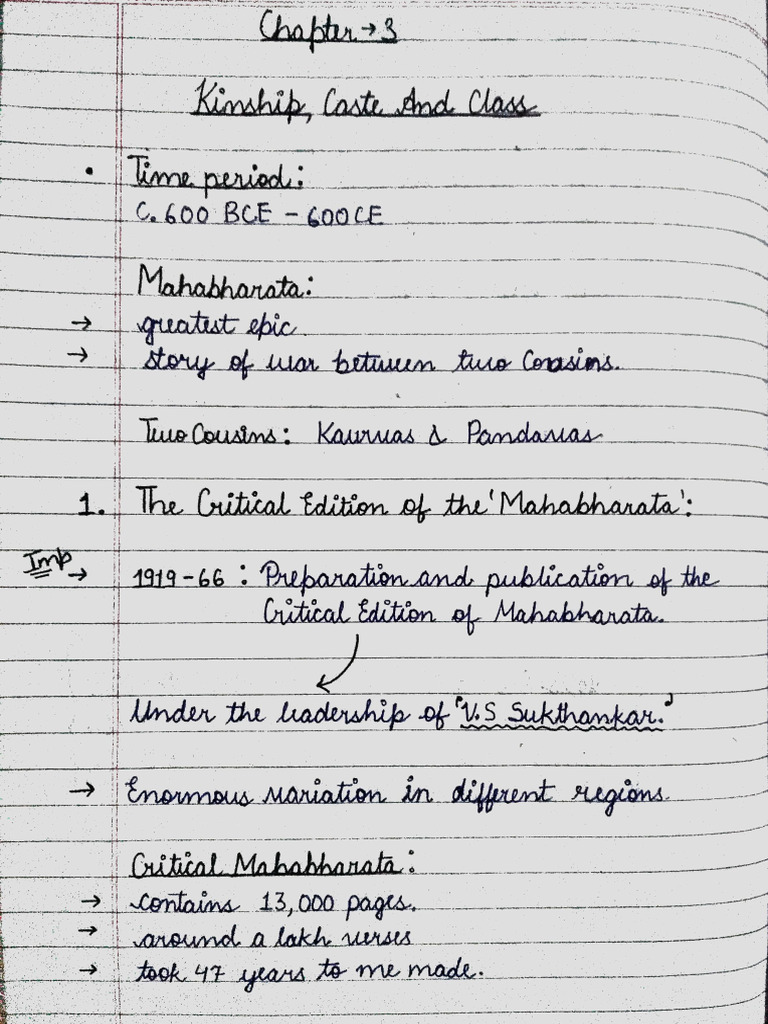 Chapter → 3
Kinship, Caste And Class
• Time period:
C. 600 BCE – 600 CE
Mahabharata:
→ greatest epic
→ story of war between two Cousins.
Two Cousins: Kauruas & Pandavas
1. The Critical Edition of the 'Mahabharata':
Imp → 1919-66 : Preparation and publication of the
Critical Edition of Mahabharata.
Under the leadership of "V.S Sukthankar."
→ Enormous variation in different regions.
Critical Mahabharata:
→ contains 13,000 pages.
→ around a lakh verses
→ took 47 years to me made.